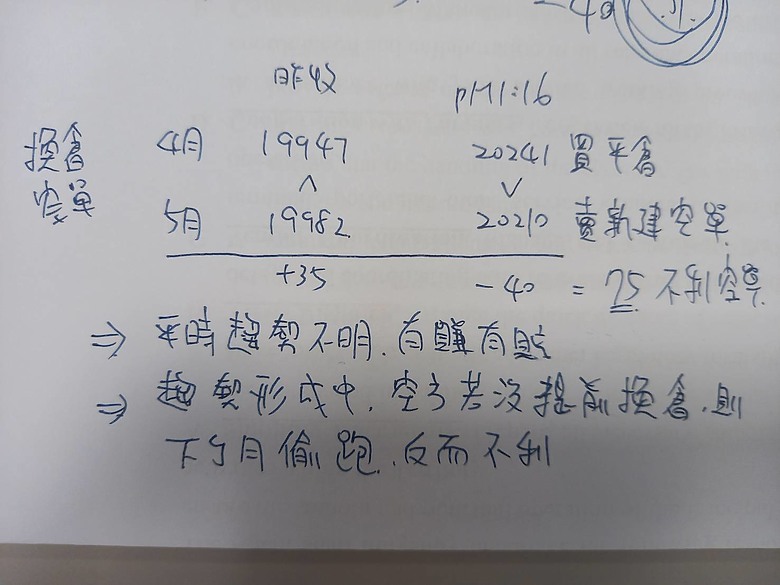 -40
昨收 PM1:16
換倉 4月 19947 20241 買平倉
空單 5月 19982 20210 賣新建空單
+35 -40 = 75 不利空單.
⇒ 平時趨勢不明,有賺有賠
⇒ 趨勢形成中,空方若沒提前換倉,則
下个月偷跑,反而不利